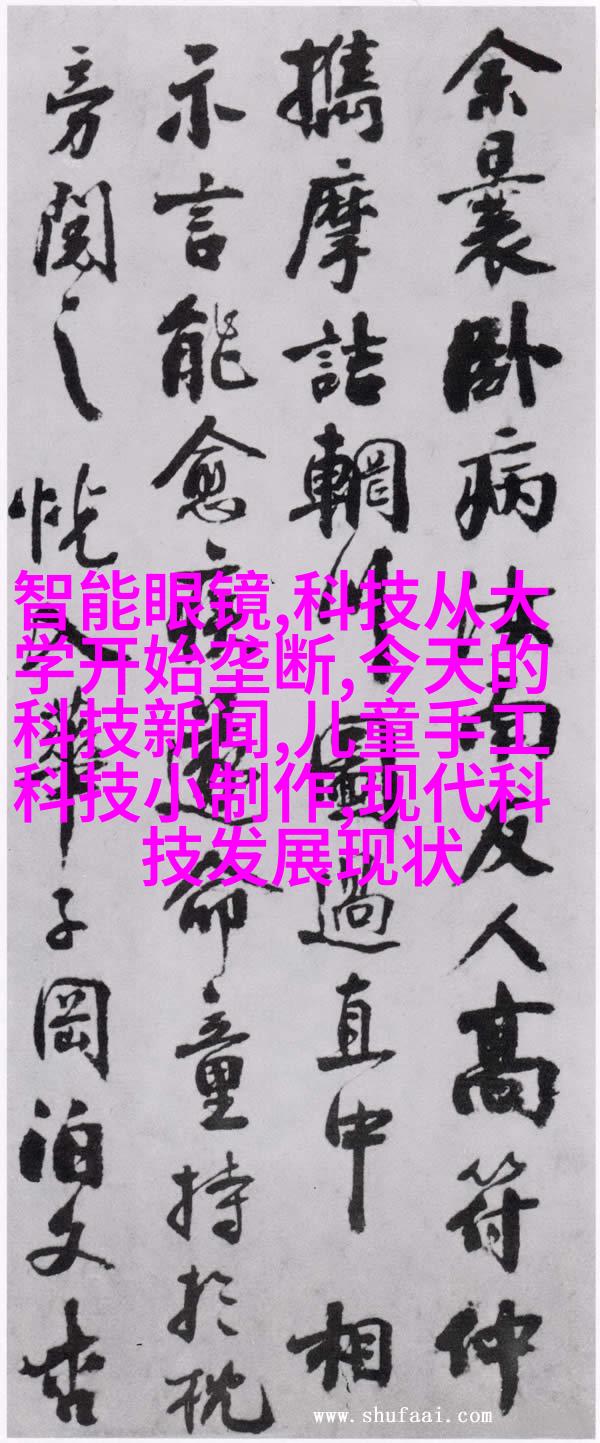 余曩卧病汝南友人高符仲
攜摩詰輞川圖過直中相
示言能愈疾遂命童持於枕
旁閱之恍入華子岡泊文杏
智能眼镜,科技从大
学开始垄断,今天的
科技新闻,儿童手工
科技小制作,现代科
技发展现状
www.shufaai.com